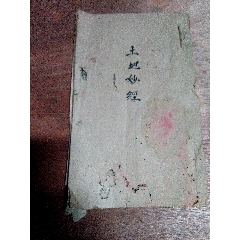 土地妙經